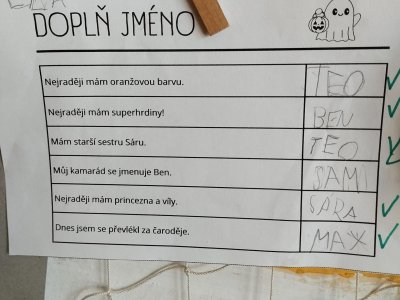 DOPLŇ JMÉNO
Nejraději mám oranžovou barvu. TEO
Nejraději mám superhrdiny! BEN
Mám starší sestru Sáru. TEO
Můj kamarád se jmenuje Ben. SAMI
Nejraději mám princezna a víly. SÁRA
Dnes jsem se převlékl za čaroděje. MAX